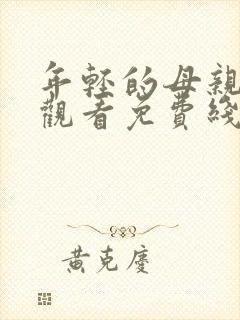 年轻的母親
觀看免費綫
黄克慶